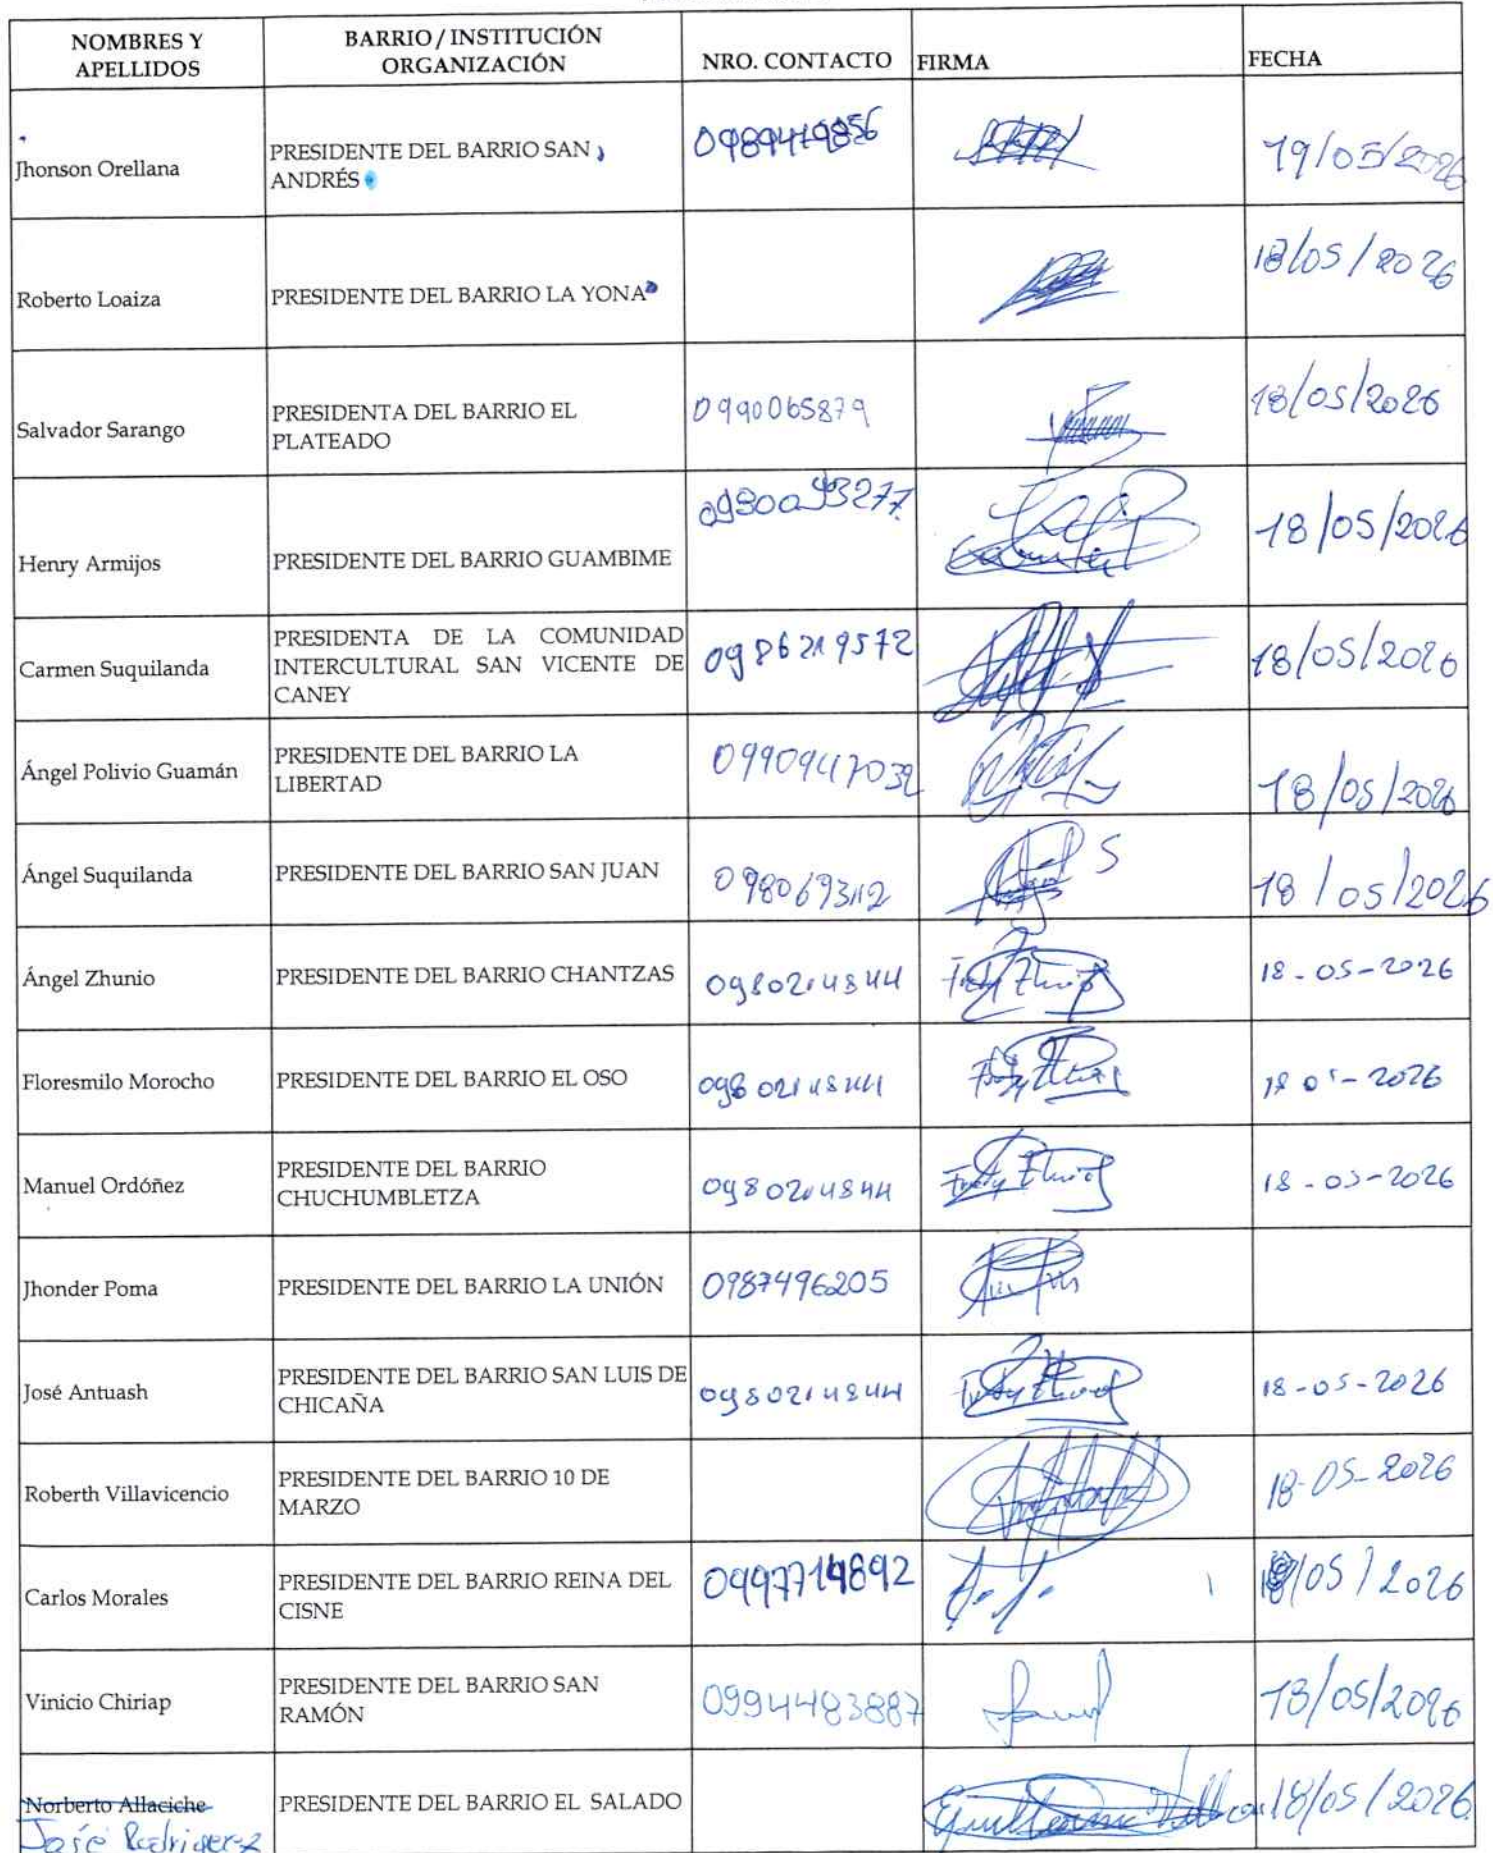 NOMBRES Y
APELLIDOS
BARRIO / INSTITUCIÓN
ORGANIZACIÓN
NRO. CONTACTO
FIRMA
FECHA
Jhonson Orellana
PRESIDENTE DEL BARRIO SAN
ANDRÉS
19/05/2026
Roberto Loaiza
PRESIDENTE DEL BARRIO LA YONA
18/05/2026
Salvador Sarango
PRESIDENTA DEL BARRIO EL
PLATEADO
0990065879
18/05/2026
Henry Armijos
PRESIDENTE DEL BARRIO GUAMBIME
18/05/2026
Carmen Suquilanda
PRESIDENTA DE LA COMUNIDAD
INTERCULTURAL SAN VICENTE DE
CANEY
18/05/2026
Ángel Polivio Guamán
PRESIDENTE DEL BARRIO LA
LIBERTAD
18/05/2026
Ángel Suquilanda
PRESIDENTE DEL BARRIO SAN JUAN
18/05/2026
Ángel Zhunio
PRESIDENTE DEL BARRIO CHANTZAS
0980214844
Fredy Zhunio
18-05-2026
Floresmilo Morocho
PRESIDENTE DEL BARRIO EL OSO
0980214844
Fredy Zhunio
Manuel Ordóñez
PRESIDENTE DEL BARRIO
CHUCHUMBLETZA
0980214844
Fredy Zhunio
18-05-2026
Jhonder Poma
PRESIDENTE DEL BARRIO LA UNIÓN
0987496205
José Antuash
PRESIDENTE DEL BARRIO SAN LUIS DE
CHICAÑA
0980214844
Fredy Zhunio
18-05-2026
Roberth Villavicencio
PRESIDENTE DEL BARRIO 10 DE
MARZO
18-05-2026
Carlos Morales
PRESIDENTE DEL BARRIO REINA DEL
CISNE
0997714892
18/05/2026
Vinicio Chiriap
PRESIDENTE DEL BARRIO SAN
RAMÓN
0994483887
18/05/2026
Norberto Allaciche
José Rodriguez
PRESIDENTE DEL BARRIO EL SALADO
18/05/2026